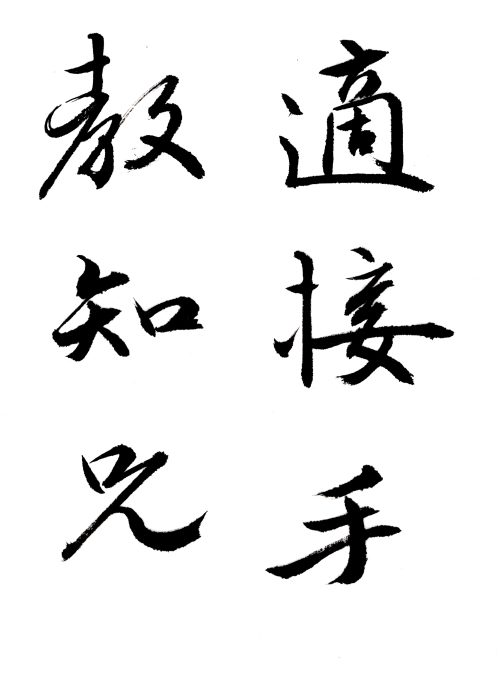 適接手
教知兄